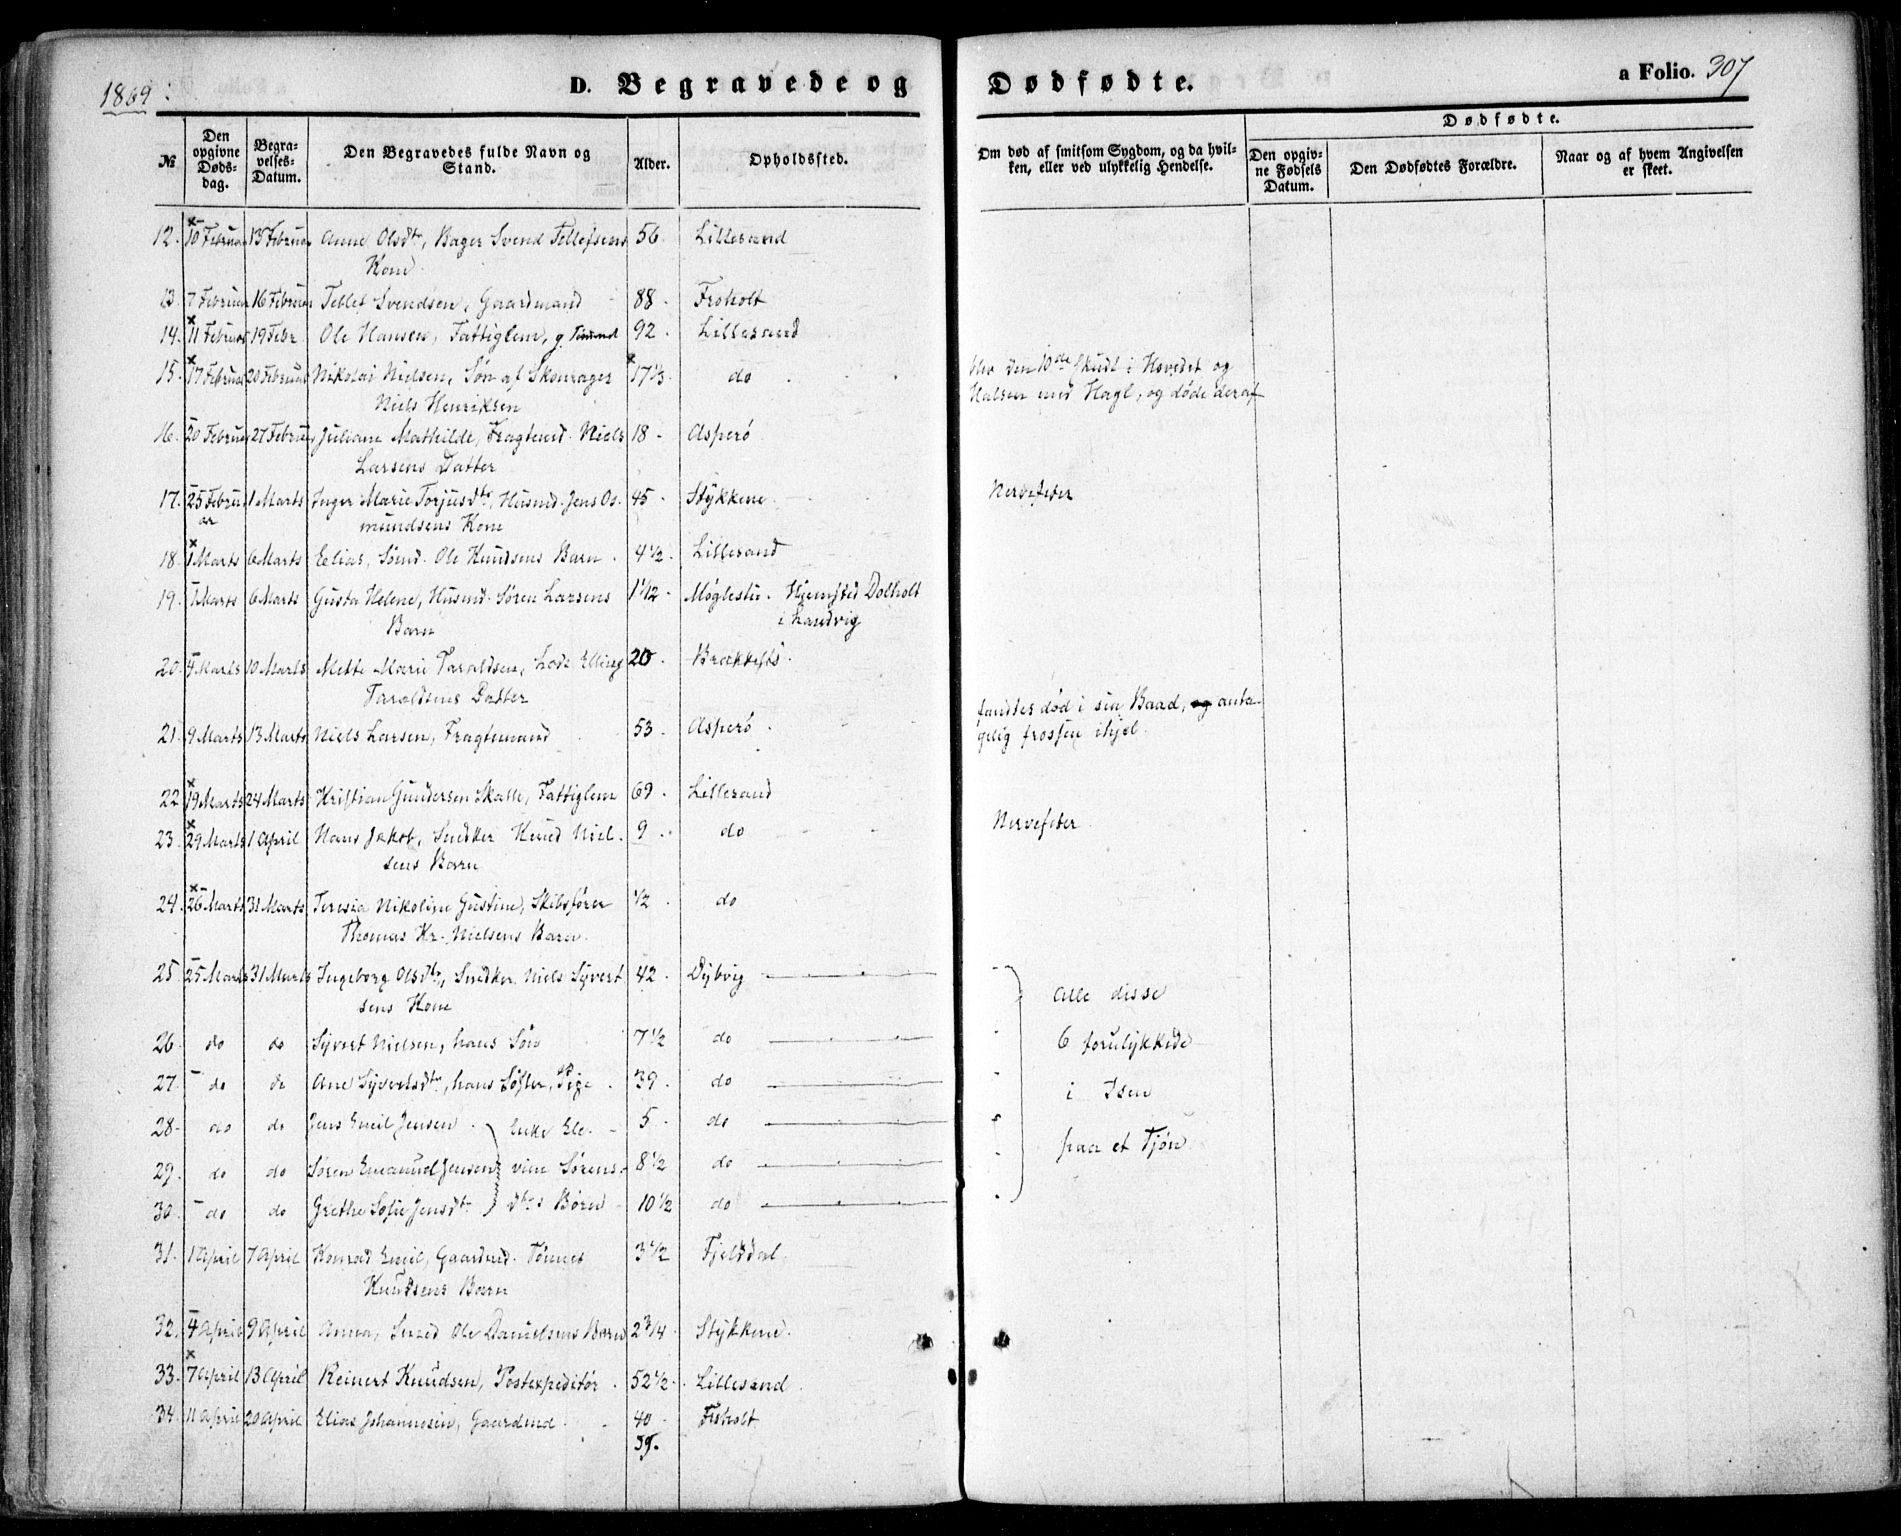 1869.
D. Begravede og Dødfødte.
a Folio. 307
№
Den opgivne Døds-dag.
Begra-velses-Datum.
Den Begravedes fulde Navn og Stand.
Alder.
Opholdssted.
Om død af smitsom Sygdom, og da hvil-ken, eller ved ulykkelig Hendelse.
Dødfødte.
Den opgiv-ne Fødsels Datum.
Den Dødfødtes Forældre.
Naar og af hvem Angivelsen er skeet.
12. 10 Februar 13 Februar Anne Olsdtr, Bager Svend Tellefsens 56. Lillesand
Kone.
13. 7 Februar 16 Februar Tellef Svendsen, Gaardmand 88. Froholt
14. 11 Februar 19 Febr Ole Hansen, Fattiglem, g. 92. Lillesand
15. 17 Februar 20 Februar Nikolai Nielsen, Søn af Skomager 17 1/3 do blev den 10de skudt i Hovedet og
Niels Henriksen Halsen med Hagl, og døde deraf
16. 20 Februar 27 Februar Juliane Mathilde, Fragtmd. Niels 18 Asperø
Larsens Datter
17. 25 Februar 1 Marts Inger Marie Torjusdtr, Husmd. Jens Os- 45. Stykkene Nervefeber
mundsens Kone
18. 1 Marts 6 Marts Elias, Sømd. Ole Knudsens Barn. 4 1/2. Lillesand
19. 1 Marts 6 Marts Gusta Helene, Husmd. Søren Larsens 1 1/2. Møglestu. Hjemsted Dolholt
Barn i Landvig
20. 4 Marts 10 Marts Mette Marie Taraldsen, Lods Elling 20. Brækkestø.
Taraldsens Datter
21. 9 Marts 13 Marts Niels Larsen, Fragtemand 53. Asperø. fandtes død i sin Baad, og anta-
gelig frossen ihjel.
22 19 Marts 24 Marts Kristian Gundersen Skalle, Fattiglem 69. Lillesand
23. 29 Marts 1 April Hans Jakob, Snedker Knud Niel- 9. do Nervefeber
sens Barn
24. 26 Marts 31 Marts Teresia Nikoline Gustine, Skibsfører 1/2. do
Thomas Kr. Nielsens Barn.
25. 25 Marts 31 Marts Ingeborg Olsdtr, Snedker Niels Syvert 42. Dybvig
sens Kone
26. do do Syvert Nielsen, hans Søn 7 1/2 do
27. do do Ane Syvertsdtr, hans Søster, Pige 39. do
28. do do Jens Emil Jensen. 5. do
29. do do Søren Emanuel Jensen 8 1/2 do
30. do do Grethe Sofie Jensdtr. 10 1/2 do
Enke Ele-
vine Sørens-
dtrs Børn
Alle disse
6 forulykkede
i Isen
paa et Tjøn
31. 1 April 7 April Konrad Emil, Gaardmd. Tønnes 3 1/2 Fjelddal
Knudsens Barn
32. 4 April 9 April Anna, Ole Danielsens Barn 2 3/4. Stykkene.
33. 7 April 13 April Reinert Knudsen, Postexpeditør. 52 1/2. Lillesand.
34. 11 April 20 April Elias Johannesen, Gaardmd. 40 Froholt
39.